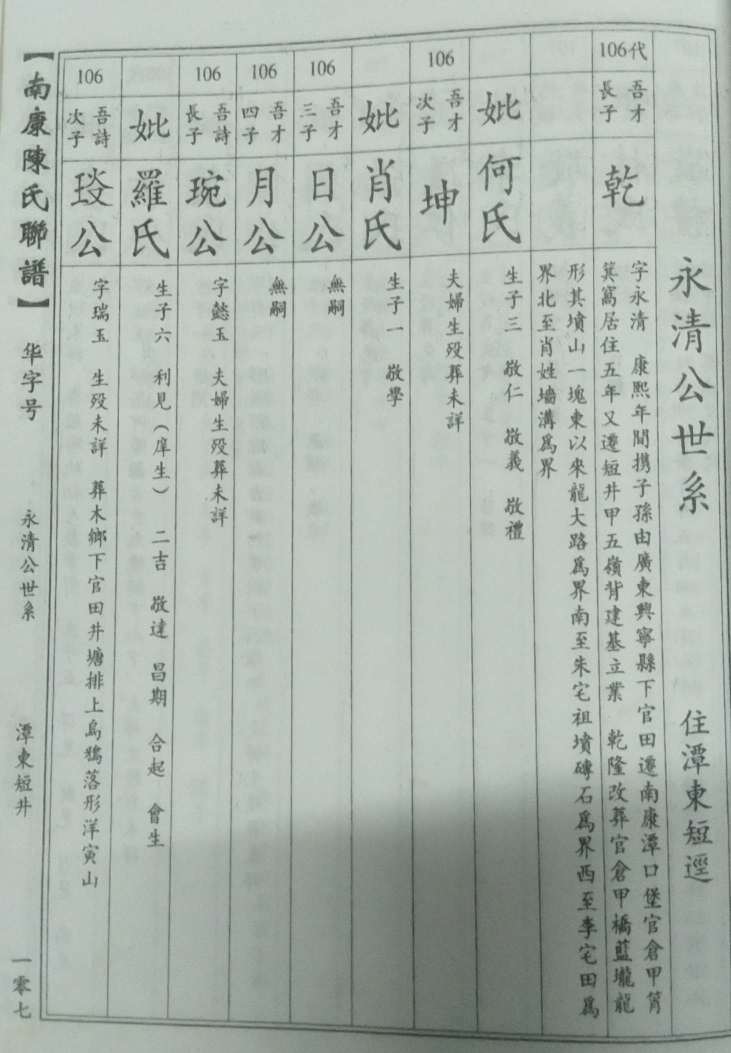 永清公世系 住潭東短逕
106代
吾才長子
乾
字永清 康熙年間携子孫由廣東興寧縣下官田遷南康潭口堡官倉甲筲
箕窩居住五年又遷短井甲五嶺背建基立業 乾隆改葬官倉甲橋藍壠龍
形其墳山一塊東以來龍大路爲界南至朱宅祖墳磚石爲界西至李宅田爲
界北至肖姓墻溝爲界
妣
何氏
生子三 敬仁 敬義 敬禮
106
吾才次子
坤
夫婦生歿葬未詳
妣
肖氏
生子一 敬學
106
吾才三子
日公
無嗣
106
吾才四子
月公
無嗣
106
吾詩長子
琬公
字懿玉 夫婦生歿葬未詳
妣
羅氏
生子六 利見(庠生) 二吉 敬達 昌期 合起 會生
106
吾詩次子
琰公
字瑞玉 生歿未詳 葬木鄉下官田井塘排上烏鴉落形洋寅山
【南康陳氏聯譜】 华字号 永清公世系 潭東短井 一零七